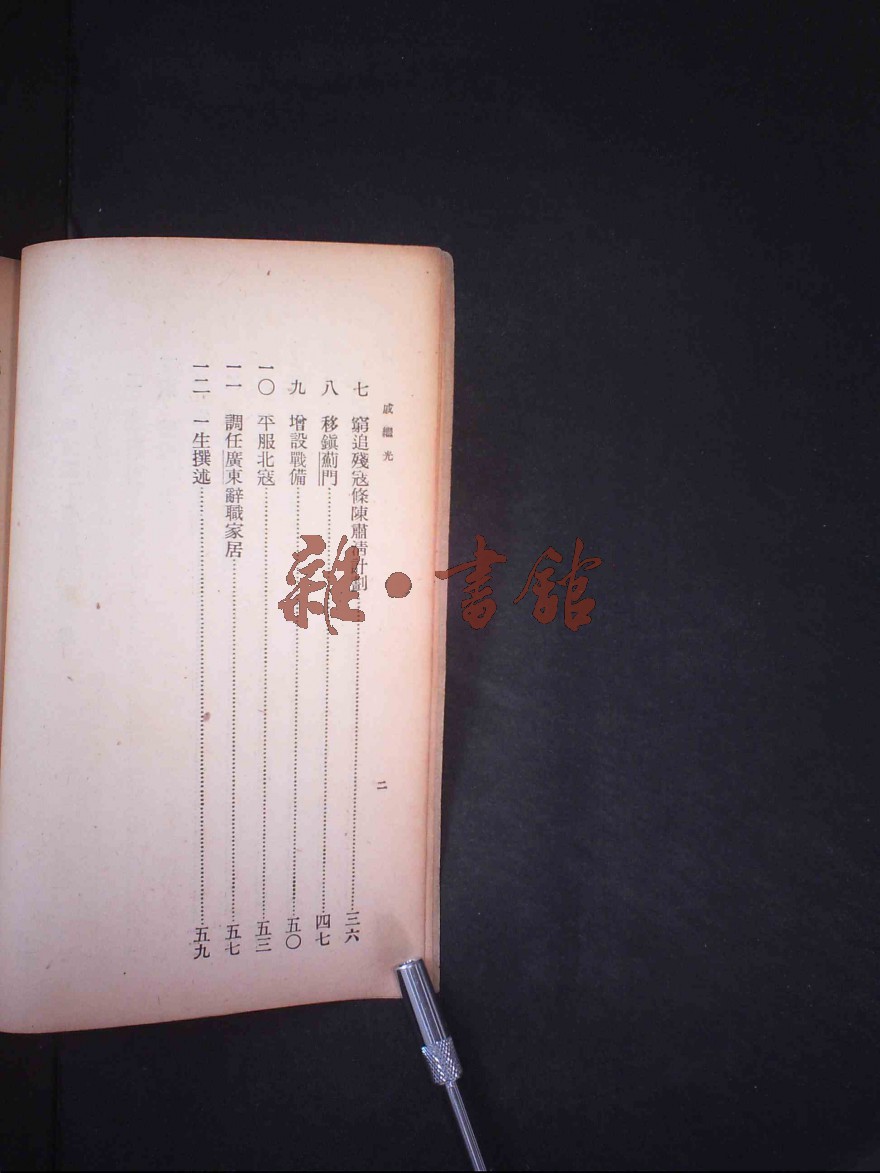 戚繼光
二
七 窮追殘寇條陳肅清計劃 三六
八 移鎮薊門 四七
九 增設戰備 五〇
一〇 平服北寇 五三
一一 調任廣東辭職家居 五七
一二 一生撰述 五九
雜·書館